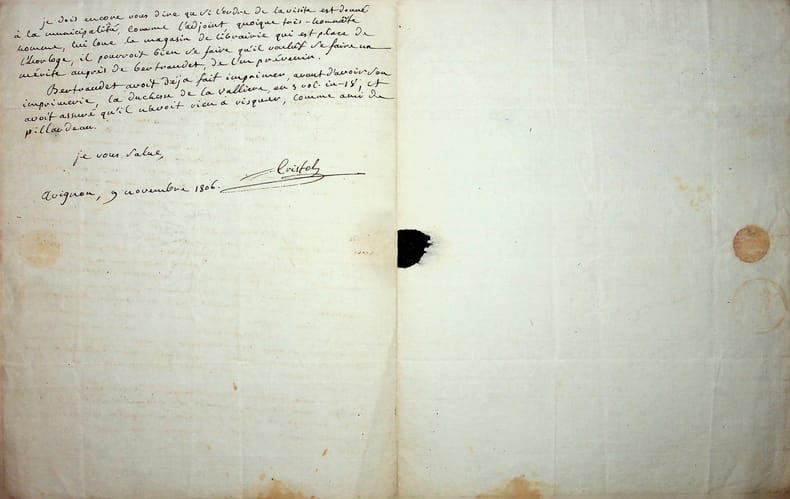 je dois encore vous dire que si l'ordre de la visite est donné
à la municipalité, comme l'adjoint quoique très-honnête
homme, lui loue le magasin de librairie qui est place de
l'horloge, il pourroit bien se faire qu'il voulut se faire un
mérite auprès de bertraudet, de l'en prévenir.
Bertraudet avoit déja fait imprimer, avant d'avoir son
imprimerie, la duchesse de la valliere, en 3 vol. in-18, et
avoit assuré qu'il n'avoit rien à risquer, comme ami de
pillardeau.
je vous salue,
avignon, 9 novembre 1806.